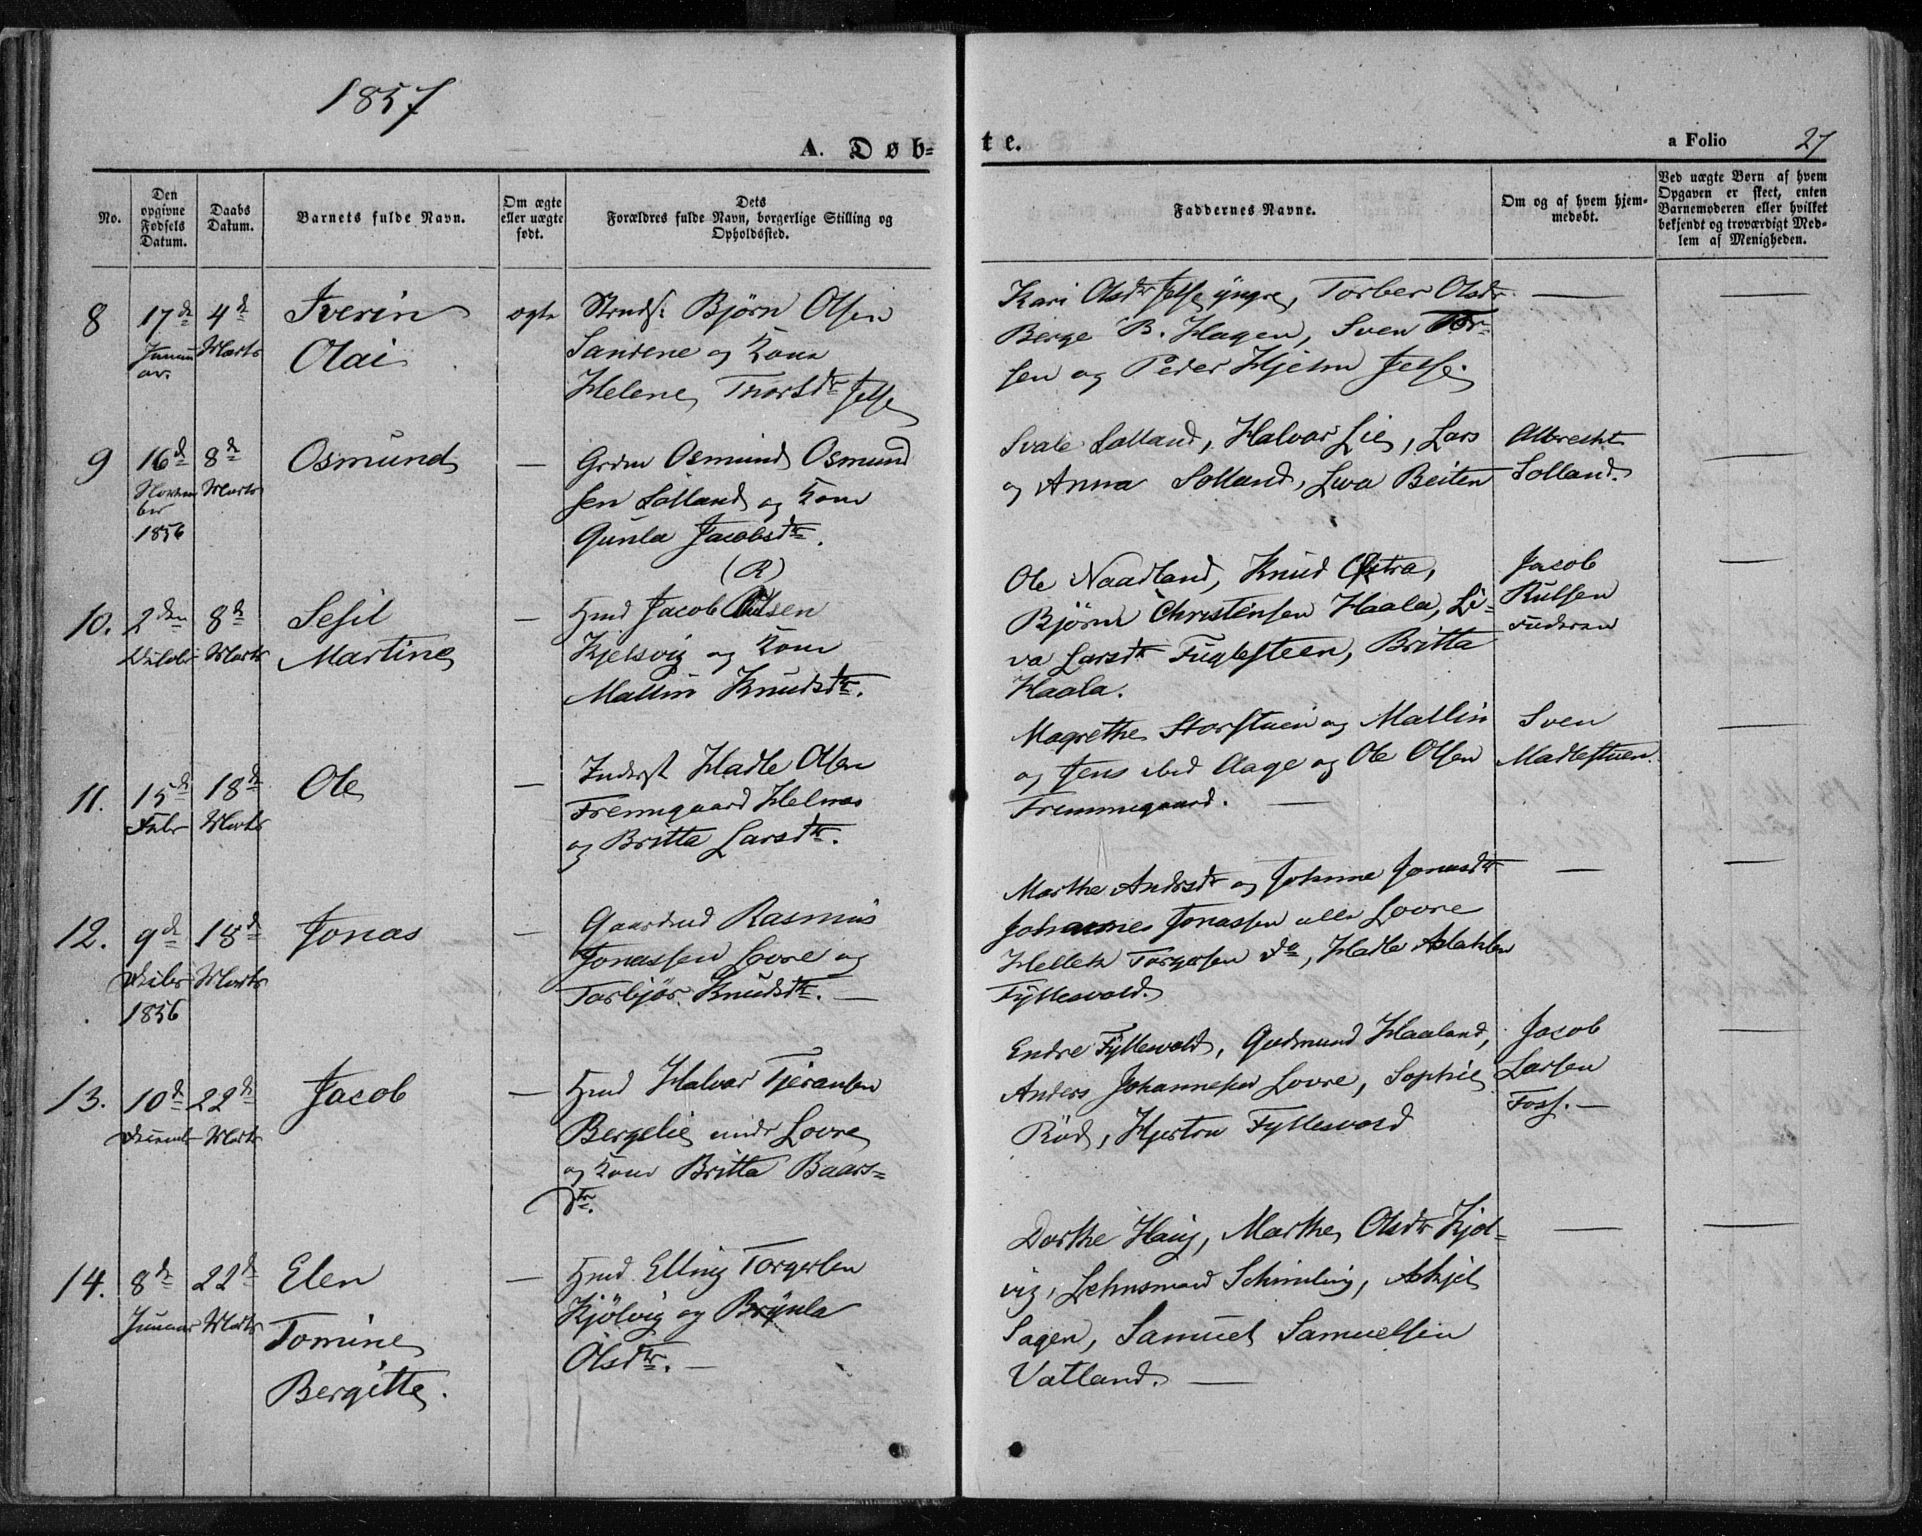 1857
A. Døb-
te.
a Folio 27
No.
Den
opgivne
Fødsels
Datum.
Daabs
Datum.
Barnets fulde Navn.
Om ægte
eller uægte
født.
Dets
Forældres fulde Navn, borgerlige Stilling og
Opholdssted.
Faddernes Navne.
Om og af hvem hjem-
medøbt.
Ved uægte Børn af hvem
Opgaven er skeet, enten
Barnemoderen eller hvilket
bekjendt og troværdigt Med-
lem af Menigheden.
8
17de
Januu
ar.
4de
Marts
Iverin
Olai
ægte
Bjørn Olsen
Sandene og Kone
Helene Thorsdtr Jelse
Kari Olsdtr Jelse yngre, Torber Olsdtr
Berge B. Hagen, Sven Tor-
sen og Peder Hjelm Jelse.
—
9
16de
Novem
ber
1856
8de
Marts
Osmund
—
Grdm Osmund Osmund
sen Lolland og Kone
Gunla Jacobsdtr.
Svale Lolland, Halvor Lie, Lars
og Anna Solland, Liva Beiten
Albrecht
Solland.
—
10.
2den
8de
Marts
Sesil
Martine
—
(R)
Hmd Jacob Rulsen
Kjelsvig og Kone
Mallin Knudsdtr.
Ole Naadland, Knud Østra,
Bjørn Christensen Haala, Li-
va Larsdtr Fuglesteen, Britta
Haala.
Jacob
Rulsen
Faderen
—
11.
15de
Febr
18de
Marts
Ole
—
Inderst Hadle Olsen
Fremgaard Helnæs
og Britta Larsdtr.
Magrethe Storstuen og Mallin
og Jens ibid Aage og Ole Olsen
Fremmegaard. —
Sven
Madlestuen.
—
12.
9de
Decbr
1856
18de
Marts
Jonas
—
Gaardmd Rasmus
Jonassen Lovre og
Torbjør Knudsdtr. —
Marthe Andrsdtr og Johanne Jonasdtr
Johannes Jonassen alle Lovre
Hellek Torgersen do, Hadle Aslaksen
Fyllesvold.
—
—
13.
10de
Decembr
22de
Marts
Jacob
—
Hmd Halvor Tjeransen
Bergelie under Lovre
og Kone Britta Baars-
dtr.
Endre Fyllesvold, Gudmund Haaland,
Anders Johannesen Lovre, Sophie
Rød, Hjertru Fyllesvold
Jacob
Larsen
Foss. —
—
14.
8de
Januar
22de
Marts
Elen
Tomine
Bergitte.
—
Hmd Elling Torgersen
Kjölvig og Brynla
Olsdtr. —
Dorthe Haug, Marthe Olsdtr Kjøl-
vig, Lehnsmand Schimling, Askjel
Sagen, Samuel Samuelsen
Vatland. —
—
—